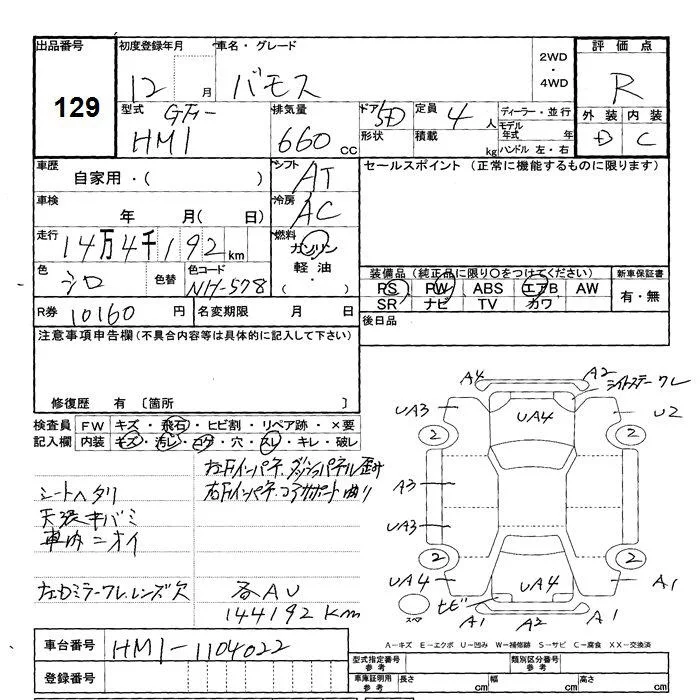 出品番号 初度登録年月 車名・グレード 2WD・4WD 評価点
129 12 月 バモス R
型式 GF- HM1 排気量 660 cc ドア 5D 形状 定員 4 人 積載 kg ディーラー・並行 モデル年式 年 ハンドル 左・右 外装 D 内装 C
車歴 自家用・( ) シフト AT セールスポイント (正常に機能するものに限ります)
車検 年 月( 日) 冷房 AC
走行 14万4千192 km 燃料 ガソリン 軽油・( )
色 シロ 色替 色コード NH-578 装備品 (純正品に限り○をつけてください) 新車保証書
PS PW ABS エアB AW 有・無
SR ナビ TV カワ
R券 10160 円 名変期限 月 日 後日品
注意事項申告欄 (不具合内容等は具体的に記入して下さい)
修復歴 有 〔箇所 〕
検査員 FW キズ・飛石・ヒビ割・リペア跡・×要
記入欄 内装 キズ・汚レ・コゲ・穴・スレ・キレ・破レ
左右Fインパネ・ダッシュパネル歪み
右Fインパネ・コアサポート曲り
シートヘタリ
天張キバミ
車内ニオイ
左ミラーワレ、レンズ欠
各AU
144192km
A4 A2
UA3 UA4 U2
2 2
A3
UA3
2 2
UA4 UA4 A1
スペア ヒビ A1 A2 A1
A-キズ E-エクボ U-凹み W-補修跡 S-サビ C-腐食 XX-交換済
車台番号 HM1-1104022
登録番号
型式指定番号 参考 類別区分番号 参考
車庫証明用 参考 長さ cm 幅 cm 高さ cm